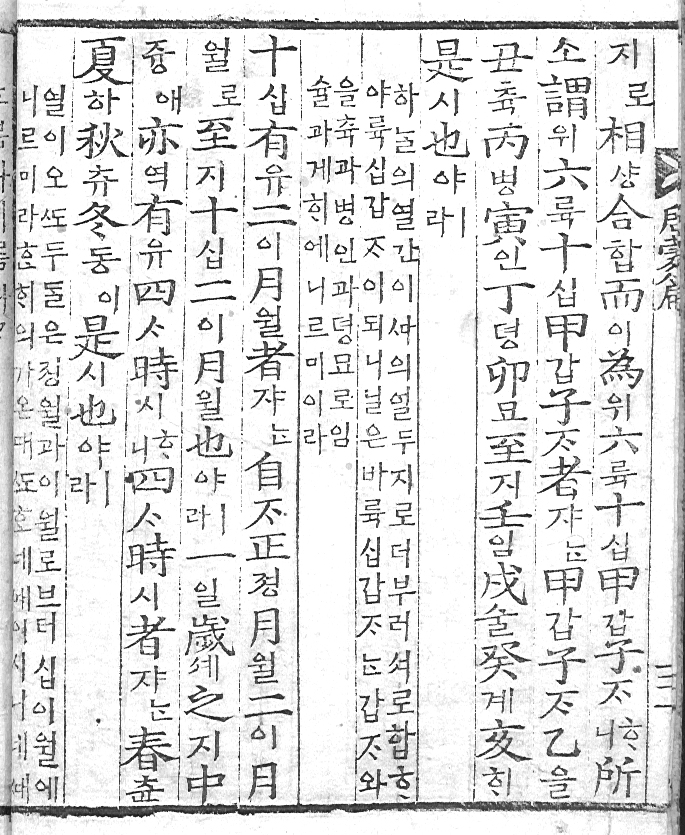 啓蒙篇
三
지로相샹合합而이為위六륙十십甲갑子ᄌᆞᄒᆞ니所
소謂위六륙十십甲갑子ᄌᆞ者쟈ᄂᆞᆫ甲갑子ᄌᆞ乙을
丑츅丙병寅인丁뎡卯묘至지壬임戌슐癸계亥ᄒᆡ
是시也야ㅣ라
하ᄂᆞᆯ의열간이ᄯᅡ의열두지로더부러서로합ᄒᆞ
야륙십갑ᄌᆞ이되니닐은바륙십갑ᄌᆞᄂᆞᆫ갑ᄌᆞ와
을츅과병인과뎡묘로임
슐과계ᄒᆡ에니르미이라
十십有유二이月월者쟈ᄂᆞᆫ自ᄌᆞ正졍月월二이月
월로至지十십二이月월也야ㅣ라一일歲셰之지中
즁애亦역有유四ᄉᆞ時시ᄒᆞ니四ᄉᆞ時시者쟈ᄂᆞᆫ春츈
夏하秋츄冬동이是시也야ㅣ라
열이오ᄯᅩ두ᄃᆞᆯ은졍월과이월로브터십이월에
니르미라ᄒᆞᆫᄒᆡ의가온대ᄯᅩᄒᆞᆫ네ᄯᅢ이시니네ᄯᅢ